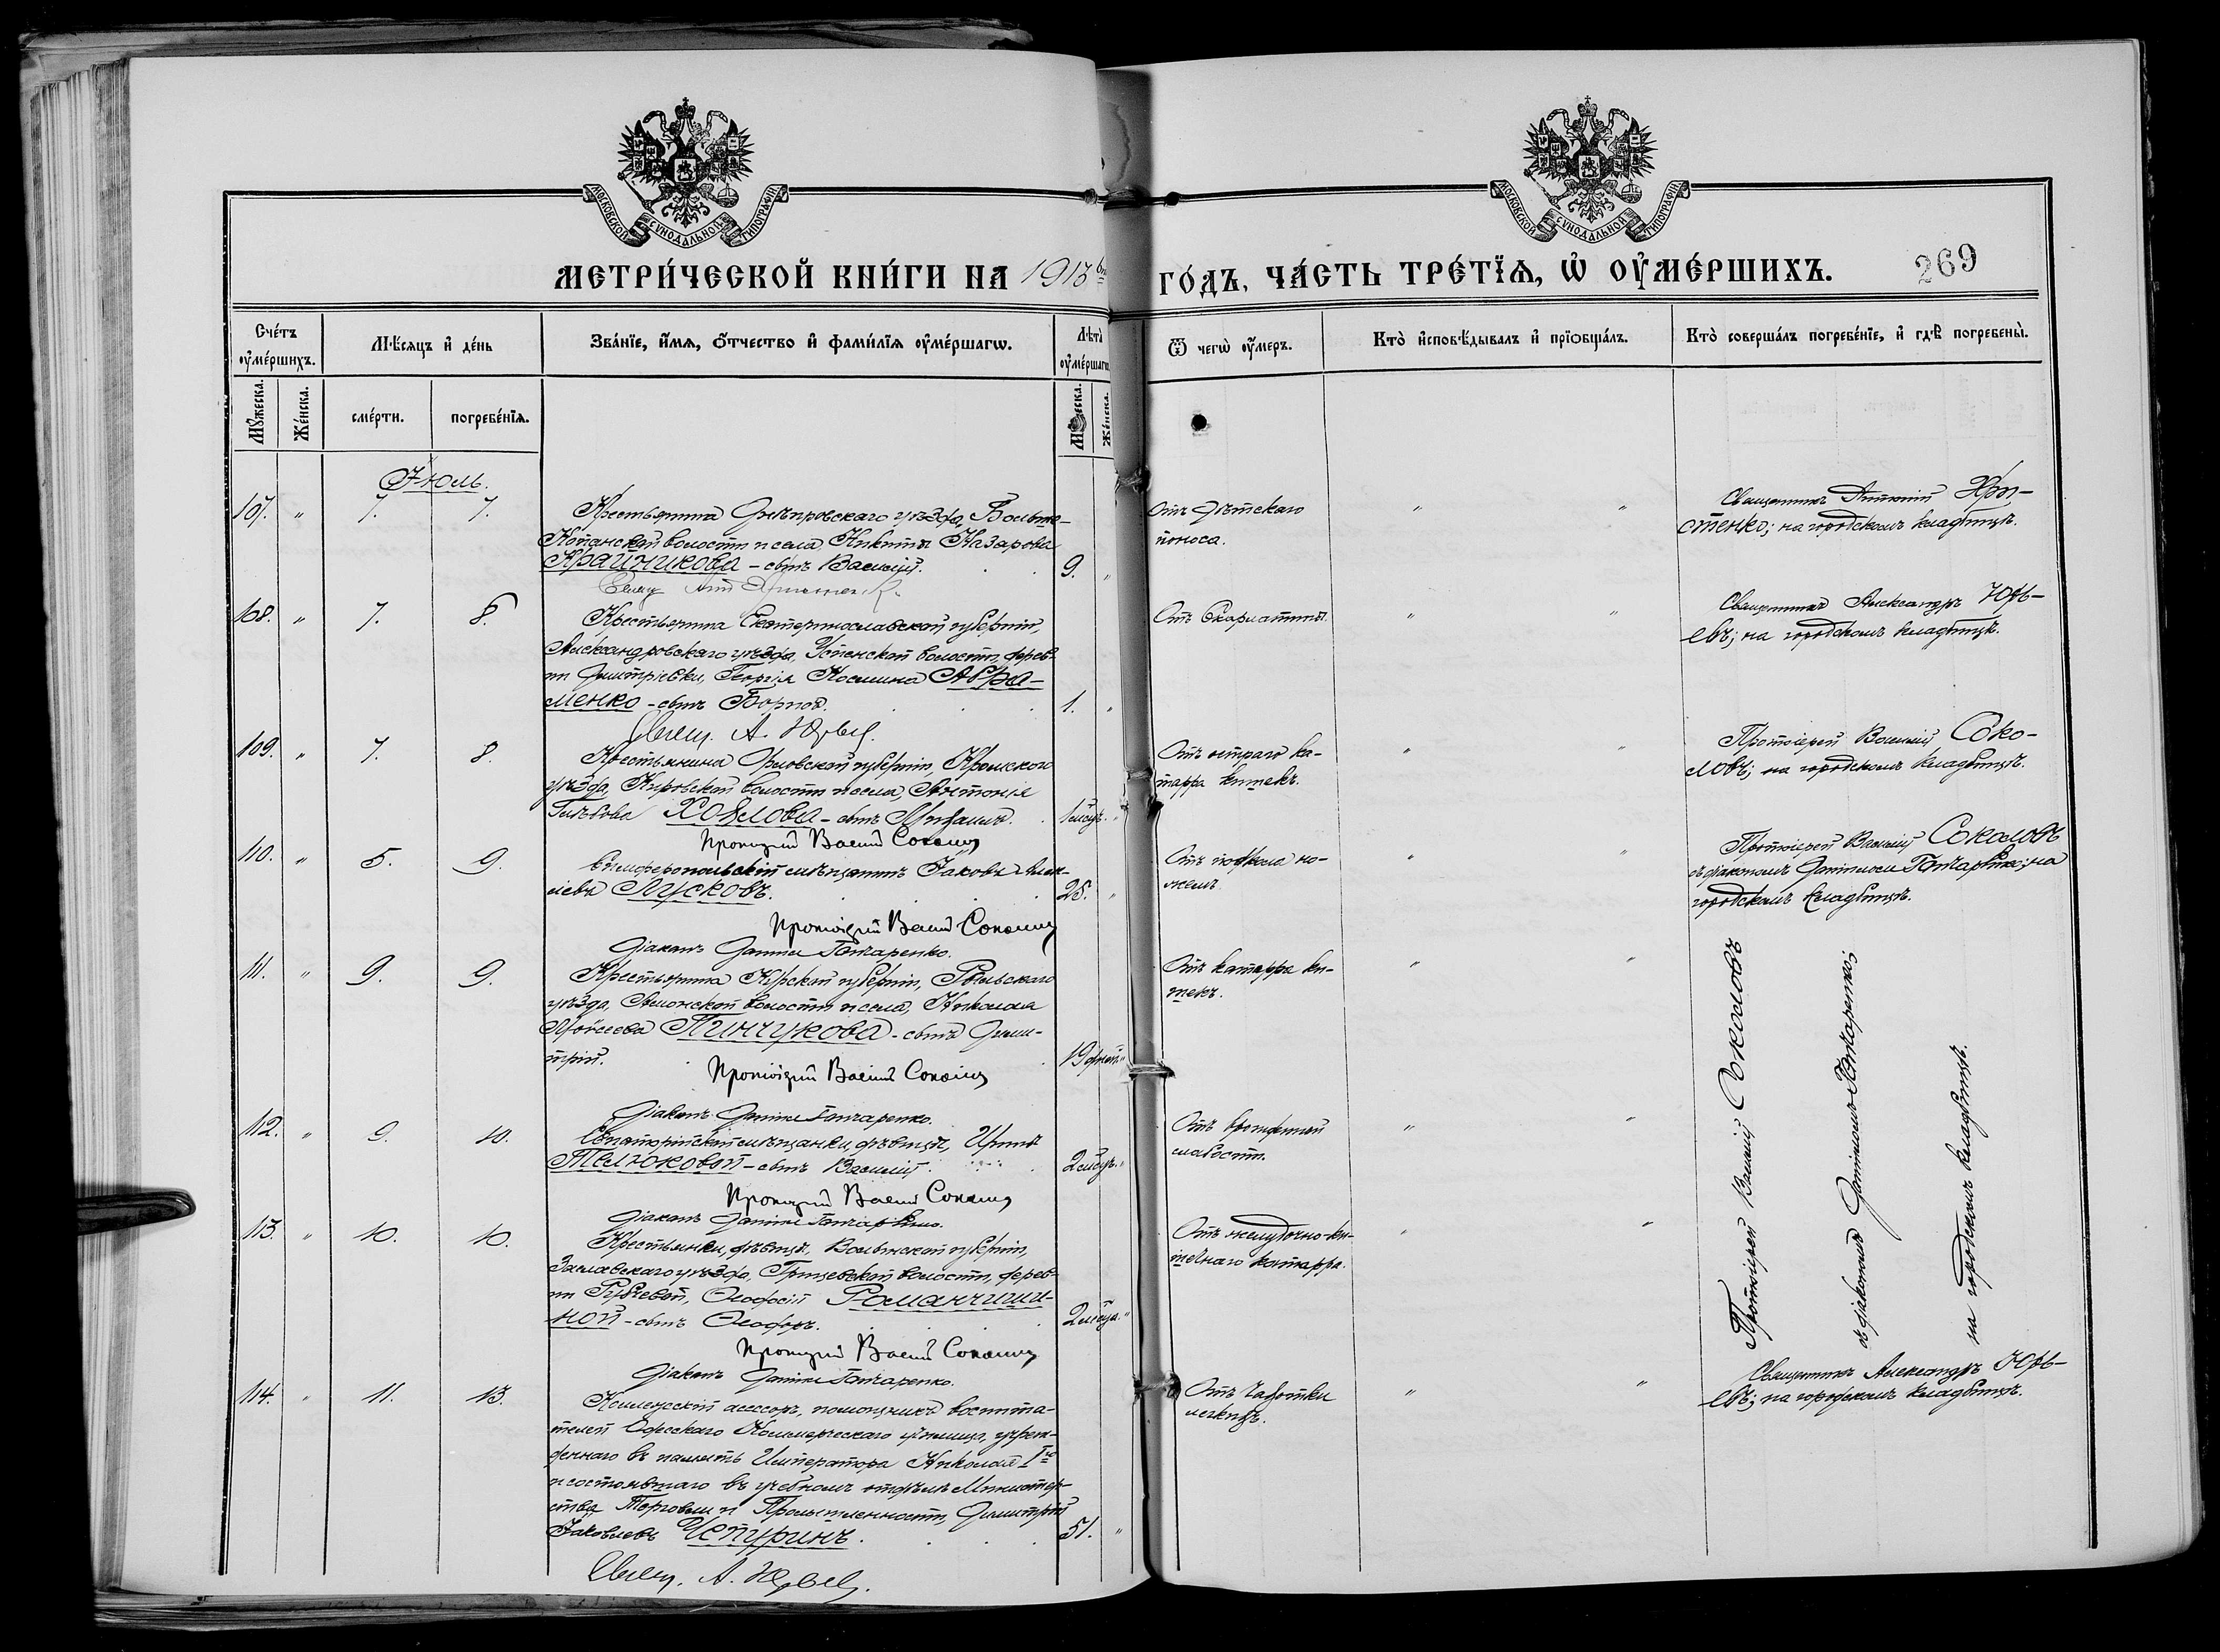 МОСКОВСКОЙ СѴНОДАЛЬНОЙ ТИПОГРАФІИ
МОСКОВСКОЙ СѴНОДАЛЬНОЙ ТИПОГРАФІИ
МЕТРИ́ЧЕСКОЙ КНИ́ГИ НА 1913 ГО́ДЪ, ЧА́СТЬ ТРЕ́ТЇѦ, Ѡ҆ ОУ҆МЕ́РШИХЪ.
269
Сче́тъ оу҆ме́ршихъ.
Мѣ́сѧцъ и҆ де́нь
Зва́нїе, и҆́мѧ, о҆́тчество и҆ фами́лїѧ оу҆ме́ршагѡ.
Лѣ́та оу҆ме́ршагѡ
Ѿ чегѡ̀ оу҆́меръ.
Кто̀ и҆сповѣ́дывалъ и҆ прїѡбща́лъ.
Кто̀ соверша́лъ погребе́нїе, и҆ гдѣ̀ погребены̀.
Мꙋ́жеска.
Же́нска.
сме́рти.
погребе́нїѧ.
Же́нска.
Іюль.
107. " 7. 7.
Крестьянина Днѣпровскаго уѣзда, Больше-
Копанской волости и села Никиты Назарова
Крайникова - сынъ Василій. 9. "
Отъ дѣтскаго
поноса.
" "
Священникъ Антоній Хри-
стенко; на городскомъ кладбищѣ.
108. " 7. 8.
Крестьянина Екатеринославской губерніи,
Александровскаго уѣзда, Успенской волости, дерев-
ни Дмитріевки, Георгія Космина Авра-
менко - сынъ Борисъ. 1. "
Свящ. А. Юрьев.
Отъ Скарлатины.
" "
Священникъ Александръ Юрь-
евъ; на городскомъ кладбищѣ.
109. " 7. 8.
Крестьянина Орловской губерніи, Кромскаго
уѣзда, волости и села, Антонія
Глѣбова - сынъ Михаилъ. 1 мѣсц. "
Протоіерей Василій Соколов
Отъ остраго ка-
тарра кишекъ.
" "
Протоіерей Василій Соко-
ловъ; на городскомъ кладбищѣ.
110. " 5. 9.
Симферопольскій мѣщанинъ Іаковъ
Лусковъ. 25. "
Протоіерей Василій Соколов
Діаконъ Даніилъ Гончаренко.
Отъ но-
жемъ.
" "
Протоіерей Василій Соколовъ
съ діакономъ Даніиломъ Гончаренко; на
городскомъ кладбищѣ.
111. " 9. 9.
Крестьянина Курской губерніи, Рыльскаго
уѣзда, волости и села, Николая
Моисеева Пинчукова - сынъ Дими-
трій. 19 дней "
Протоіерей Василій Соколов
Діаконъ Даніилъ Гончаренко.
Отъ катарра ки-
шекъ.
" "
Протоіерей Василій Соколовъ
съ діакономъ Даніиломъ Гончаренко;
на городскомъ кладбищѣ.
112. " 9. 10.
Евпаторійской мѣщанки, дѣвицы, Ирины
- сынъ Василій. 2 мѣсц. "
Протоіерей Василій Соколов
Діаконъ Даніилъ Гончаренко.
Отъ врожденной
слабости.
" "
113. " 10. 10.
Крестьянки, дѣвицы, Волынской губерніи,
Заславскаго уѣзда, Грицевской волости, дерев-
ни Ѳеодосіи Романчиши-
ной - сынъ Ѳеодоръ. 2 мѣсца. "
Протоіерей Василій Соколов
Діаконъ Даніилъ Гончаренко.
Отъ желудочно-ки-
шечнаго катарра.
" "
114. " 11. 13.
Коллежскій асессоръ, помощникъ воспита-
телей Одесскаго Коммерческаго училища, учреж-
деннаго въ память Императора Николая I го
и состоявшаго въ учебномъ отдѣлѣ Министер-
ства Торговли и Промышленности, Димитрій
Іаковлевъ Чепуринъ. 51. "
Свящ. А. Юрьев.
Отъ чахотки
легкихъ.
" "
Священникъ Александръ Юрь-
евъ; на городскомъ кладбищѣ.